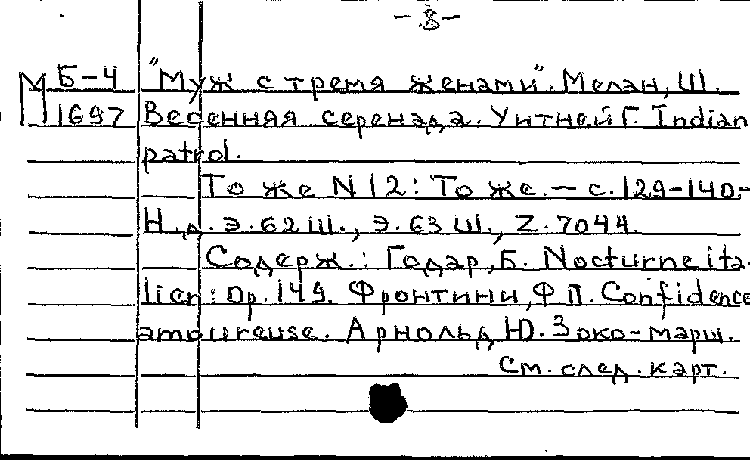 -8-
Б-4 "Муж с тремя женами". Мелан, Ш.
М 1697 Весенняя серенада. Уитней Г. Indian
patrol.
То же N 12: То же. - с. 129-140. -
Н.д. Э. 62 Ш., Э. 63 Ш., Z. 7044.
Содерж.: Годар, Б. Nocturne ita-
lien: Op. 149. Фронтини, Ф П. Confidence
amoureuse. Арнольд, Ю. Зоко-марш.
См. след. карт.